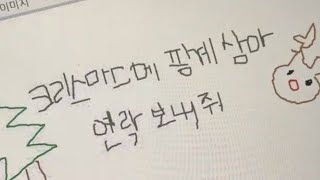 이미지
크리스마스에 핑계 삼아
연락 보내줘